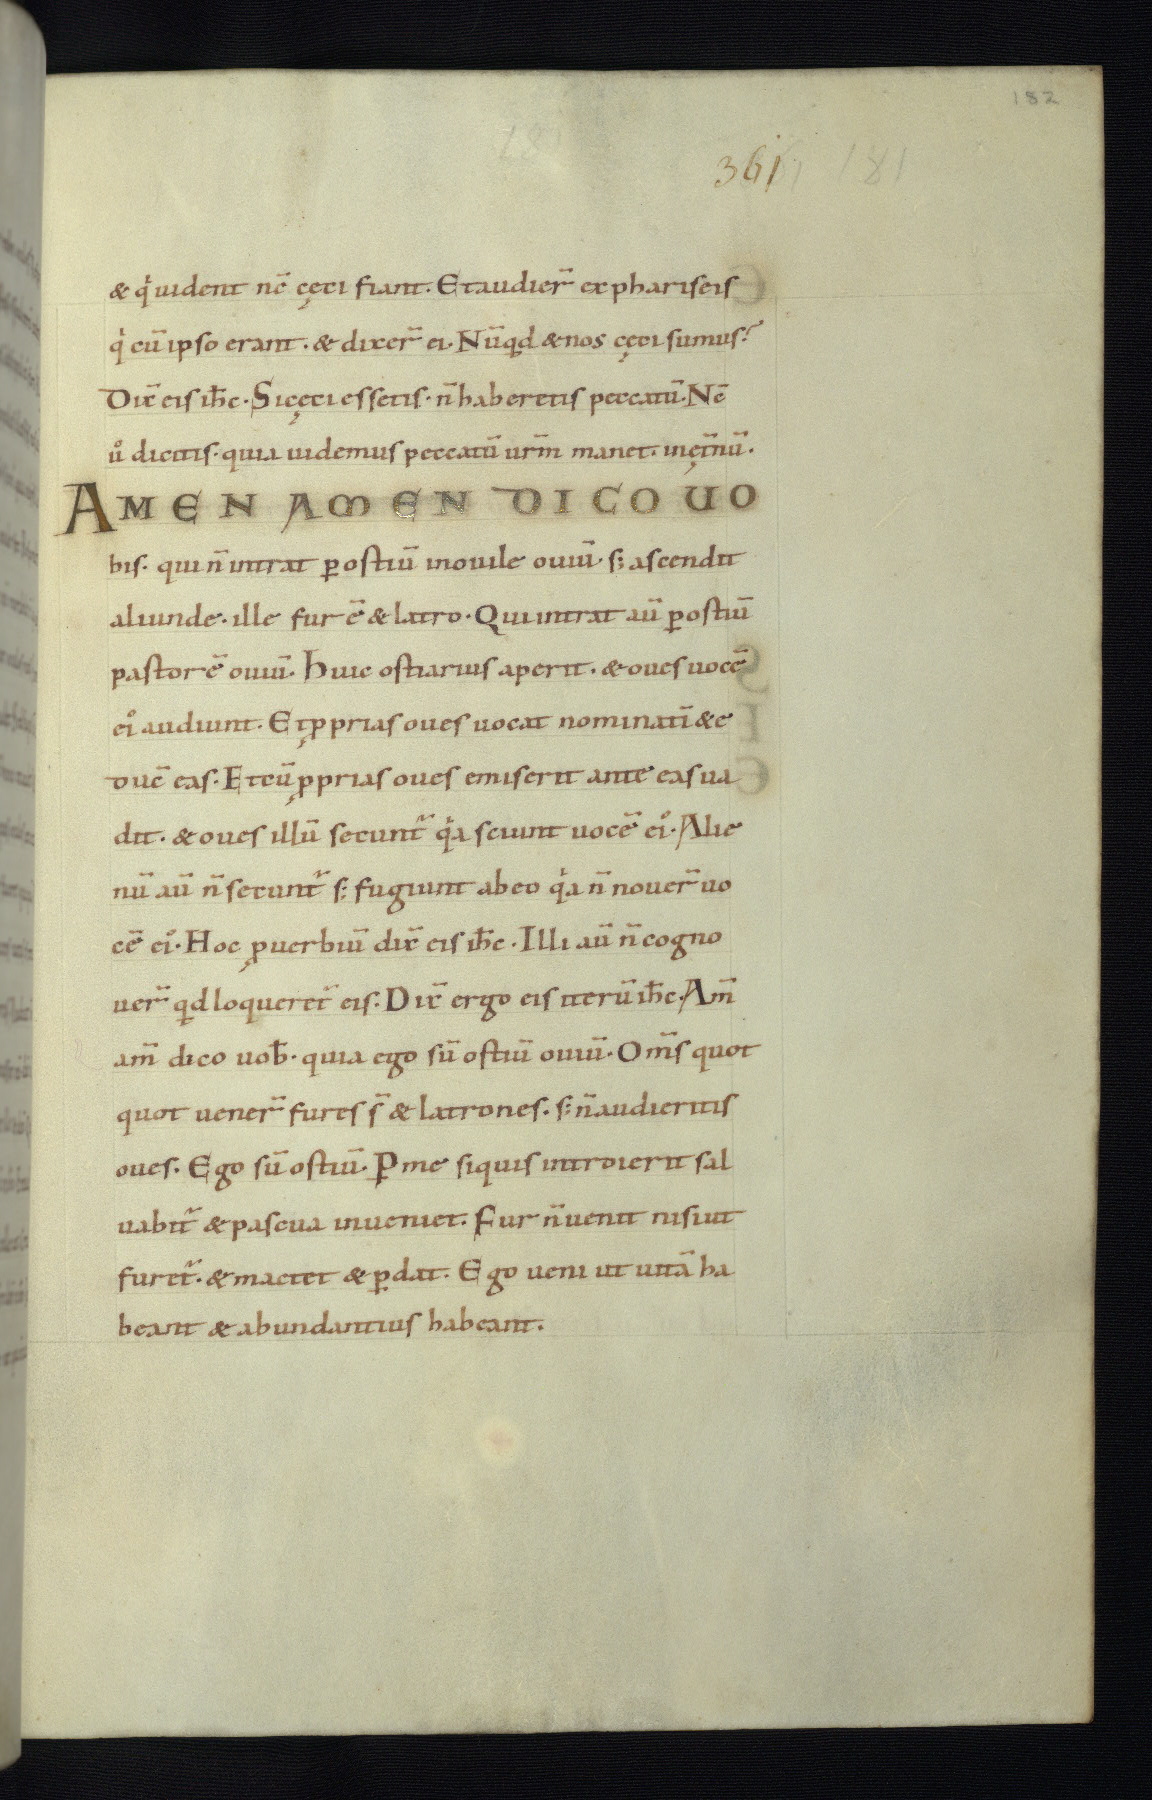 182
361 181
& qͥ uident nc̄ cęci fiant. Et audier̄ ex phariseis
qͥ cū ipso erant. & dixer̄ ei. Nūqd & nos cęci sumus?
Dix̄ eis ih̄c. Si cęci essetis. n̄ haberetis peccatū. Nc̄
uͦ dicitis. quia uidemus peccatū ur̄m manet. inęt̄nū.
AMEN AMEN DICO UO
bis. qui n̄ intrat ꝑ ostiū inouile ouiū. s; ascendit
aliunde. ille fur ē & latro. Qui intrat aū ꝑ ostiū
pastor ē ouiū. Huic ostiarius aperit. & oues uocē
eiͦ audiunt. Et ꝓprias oues uocat nominatī & e
duc̄ eas. Et cū ꝓprias oues emiserit ante eas ua
dit. & oues illū secunt̄ qͥa sciunt uocē eiͦ. Alie
nū aū n̄ secunt̄ s; fugiunt ab eo qͥa n̄ nouer̄ uo
cē eiͦ. Hoc ꝓuerbiū dix̄ eis ih̄c. Illi aū n̄ cogno
uer̄ qd loqueret̄ eis. Dix̄ ergo eis iterū ih̄c. Am̄
am̄ dico uob̄. quia ego sū ostiū ouiū. Om̄s quot
quot uener̄ fures s̄ & latrones. s; n̄ audieritis
oues. Ego sū ostiū. Ꝑ me siquis introierit sal
uabit̄ & pascua inueniet. Fur n̄ uenit nisi ut
furet̄. & mactet & ꝑdat. Ego ueni ut uitā ha
beant & abundantius habeant.